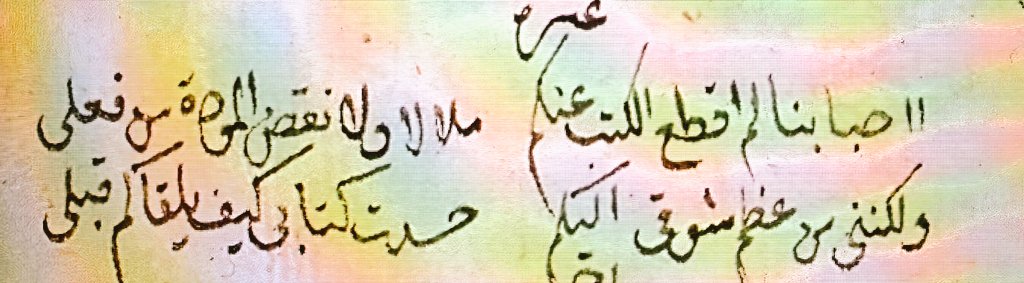 غيره
ااحبابنا لم اقطع الكتب عنكم ملالا ولا نقض المودة من فعلي
ولكنني من عظم شوقي اليكم حسدت كتابي كيف يلقاكم قبلي